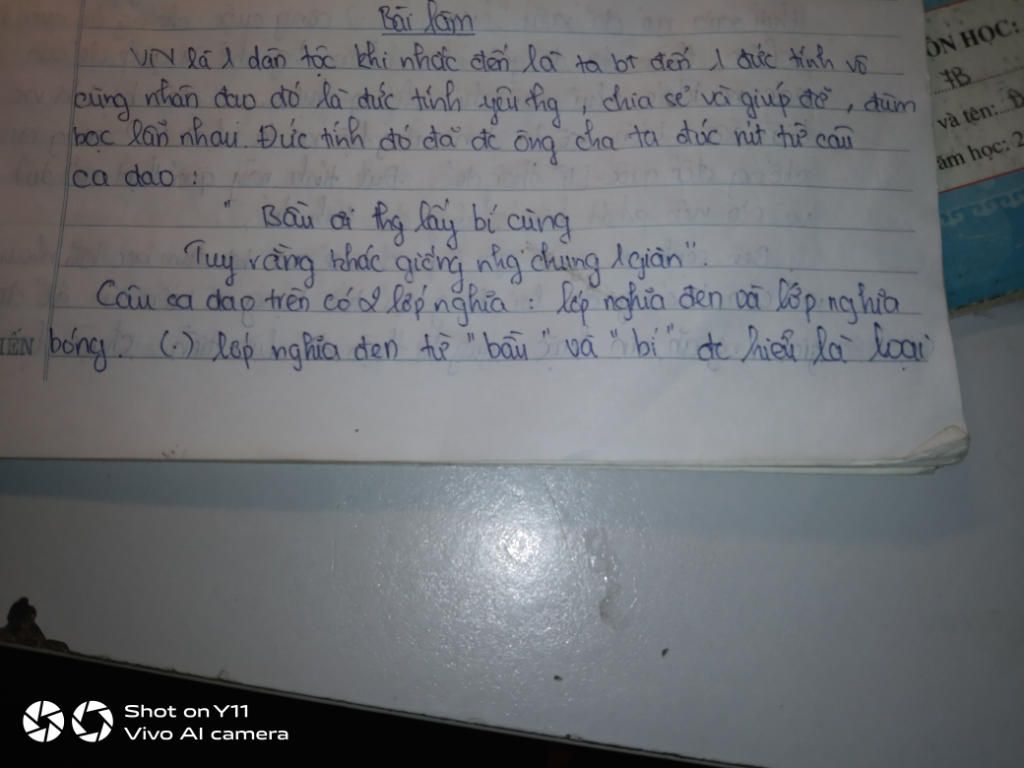 Bài làm
VN là 1 dân tộc khi nhắc đến là ta bt đến 1 đức tính vô
cùng nhân đạo đó là đức tính yêu thg, chia sẻ và giúp đỡ, đùm
bọc lẫn nhau. Đức tính đó đã đc ông cha ta đúc rút từ câu
ca dao:
" Bầu ơi thg lấy bí cùng
Tuy rằng khác giống nhg chung 1 giàn".
Câu ca dao trên có 2 lớp nghĩa: lớp nghĩa đen và lớp nghĩa
bóng. (.) lớp nghĩa đen từ "bầu" và "bí" đc hiểu là loại
IẾN
ÔN HỌC:
7B
và tên: Đ
ăm học: 2
Shot on Y11
Vivo AI camera